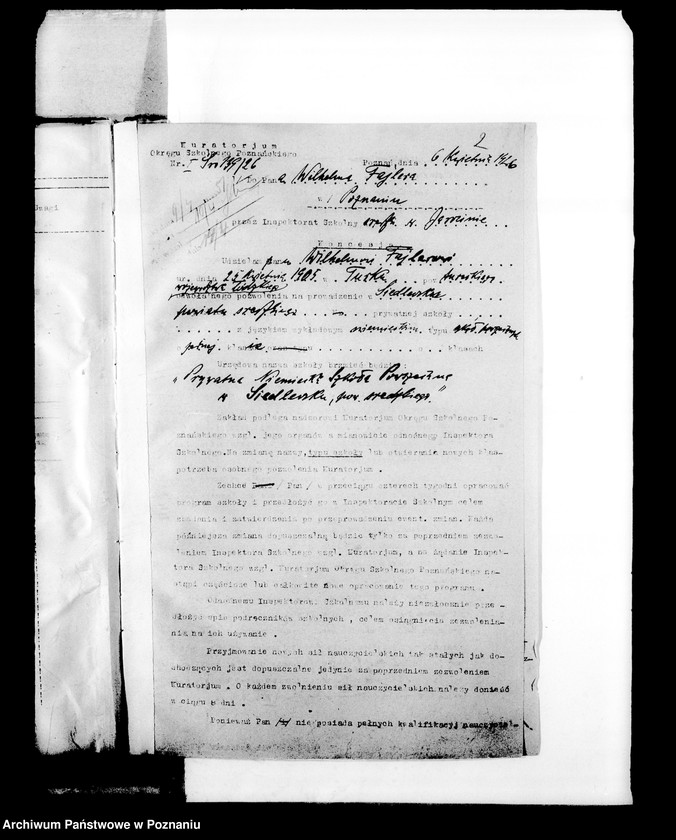 2
Kuratorjum
Okręgu Szkolnego Poznańskiego
Nr. I Sn 199/26
Poznań, dnia 6 Kwietnia 1926
Do Pana Wilhelma Fajlera
w Poznaniu
przez Inspektorat Szkolny w Jarocinie
Koncesja
Udzielam Panu Wilhelmowi Fajlerowi
ur. dnia 23 Kwietnia 1905 w pow. tureckiego
województwa łódzkiego
pozwolenia na prowadzenie w Siedleczku
powiatu prywatnej szkoły
z językiem wykładowym niemieckim typu
klasach
Urzędowa nazwa szkoły brzmieć będzie
"Prywatna Niemiecka Szkoła Powszechna
w Siedleczku, pow. średzkiego."
Zakład podlega nadzorowi Kuratorjum Okręgu Szkolnego Po-
znańskiego wzgl. jego organów a mianowicie odnośnego Inspektora
Szkolnego. Na zmianę nazwy, typu szkoły lub otwieranie nowych klas
potrzeba osobnego pozwolenia Kuratorjum.
Zechce /Pan/ w przeciągu czterech tygodni opracować
program szkoły i przedłożyć go w Inspektoracie Szkolnym celem
zbadania i zatwierdzenia po przeprowadzeniu ewent. zmian. Każda
późniejsza zmiana dopuszczalną będzie tylko za poprzedniem zezwo-
leniem Inspektora Szkolnego wzgl. Kuratorjum, a na żądanie Inspek-
tora Szkolnego wzgl. Kuratorjum Okręgu Szkolnego Poznańskiego na-
stąpi częściowe lub całkowite nowe opracowanie tego programu.
Odnośnemu Inspektorowi Szkolnemu należy niezwłocznie prze-
dłożyć spis podręczników szkolnych, celem osiągnięcia zezwole-
nia na ich używanie.
Przyjmowanie nowych sił nauczycielskich tak stałych jak do-
chodzących jest dopuszczalne jedynie za poprzedniem zezwoleniem
Kuratorjum. O każdem zwolnieniu sił nauczycielskich należy donieść
w ciągu 8 dni.
Ponieważ Pan nie posiada pełnych kwalifikacyj nauczyciel-
Archiwum Państwowe w Poznaniu